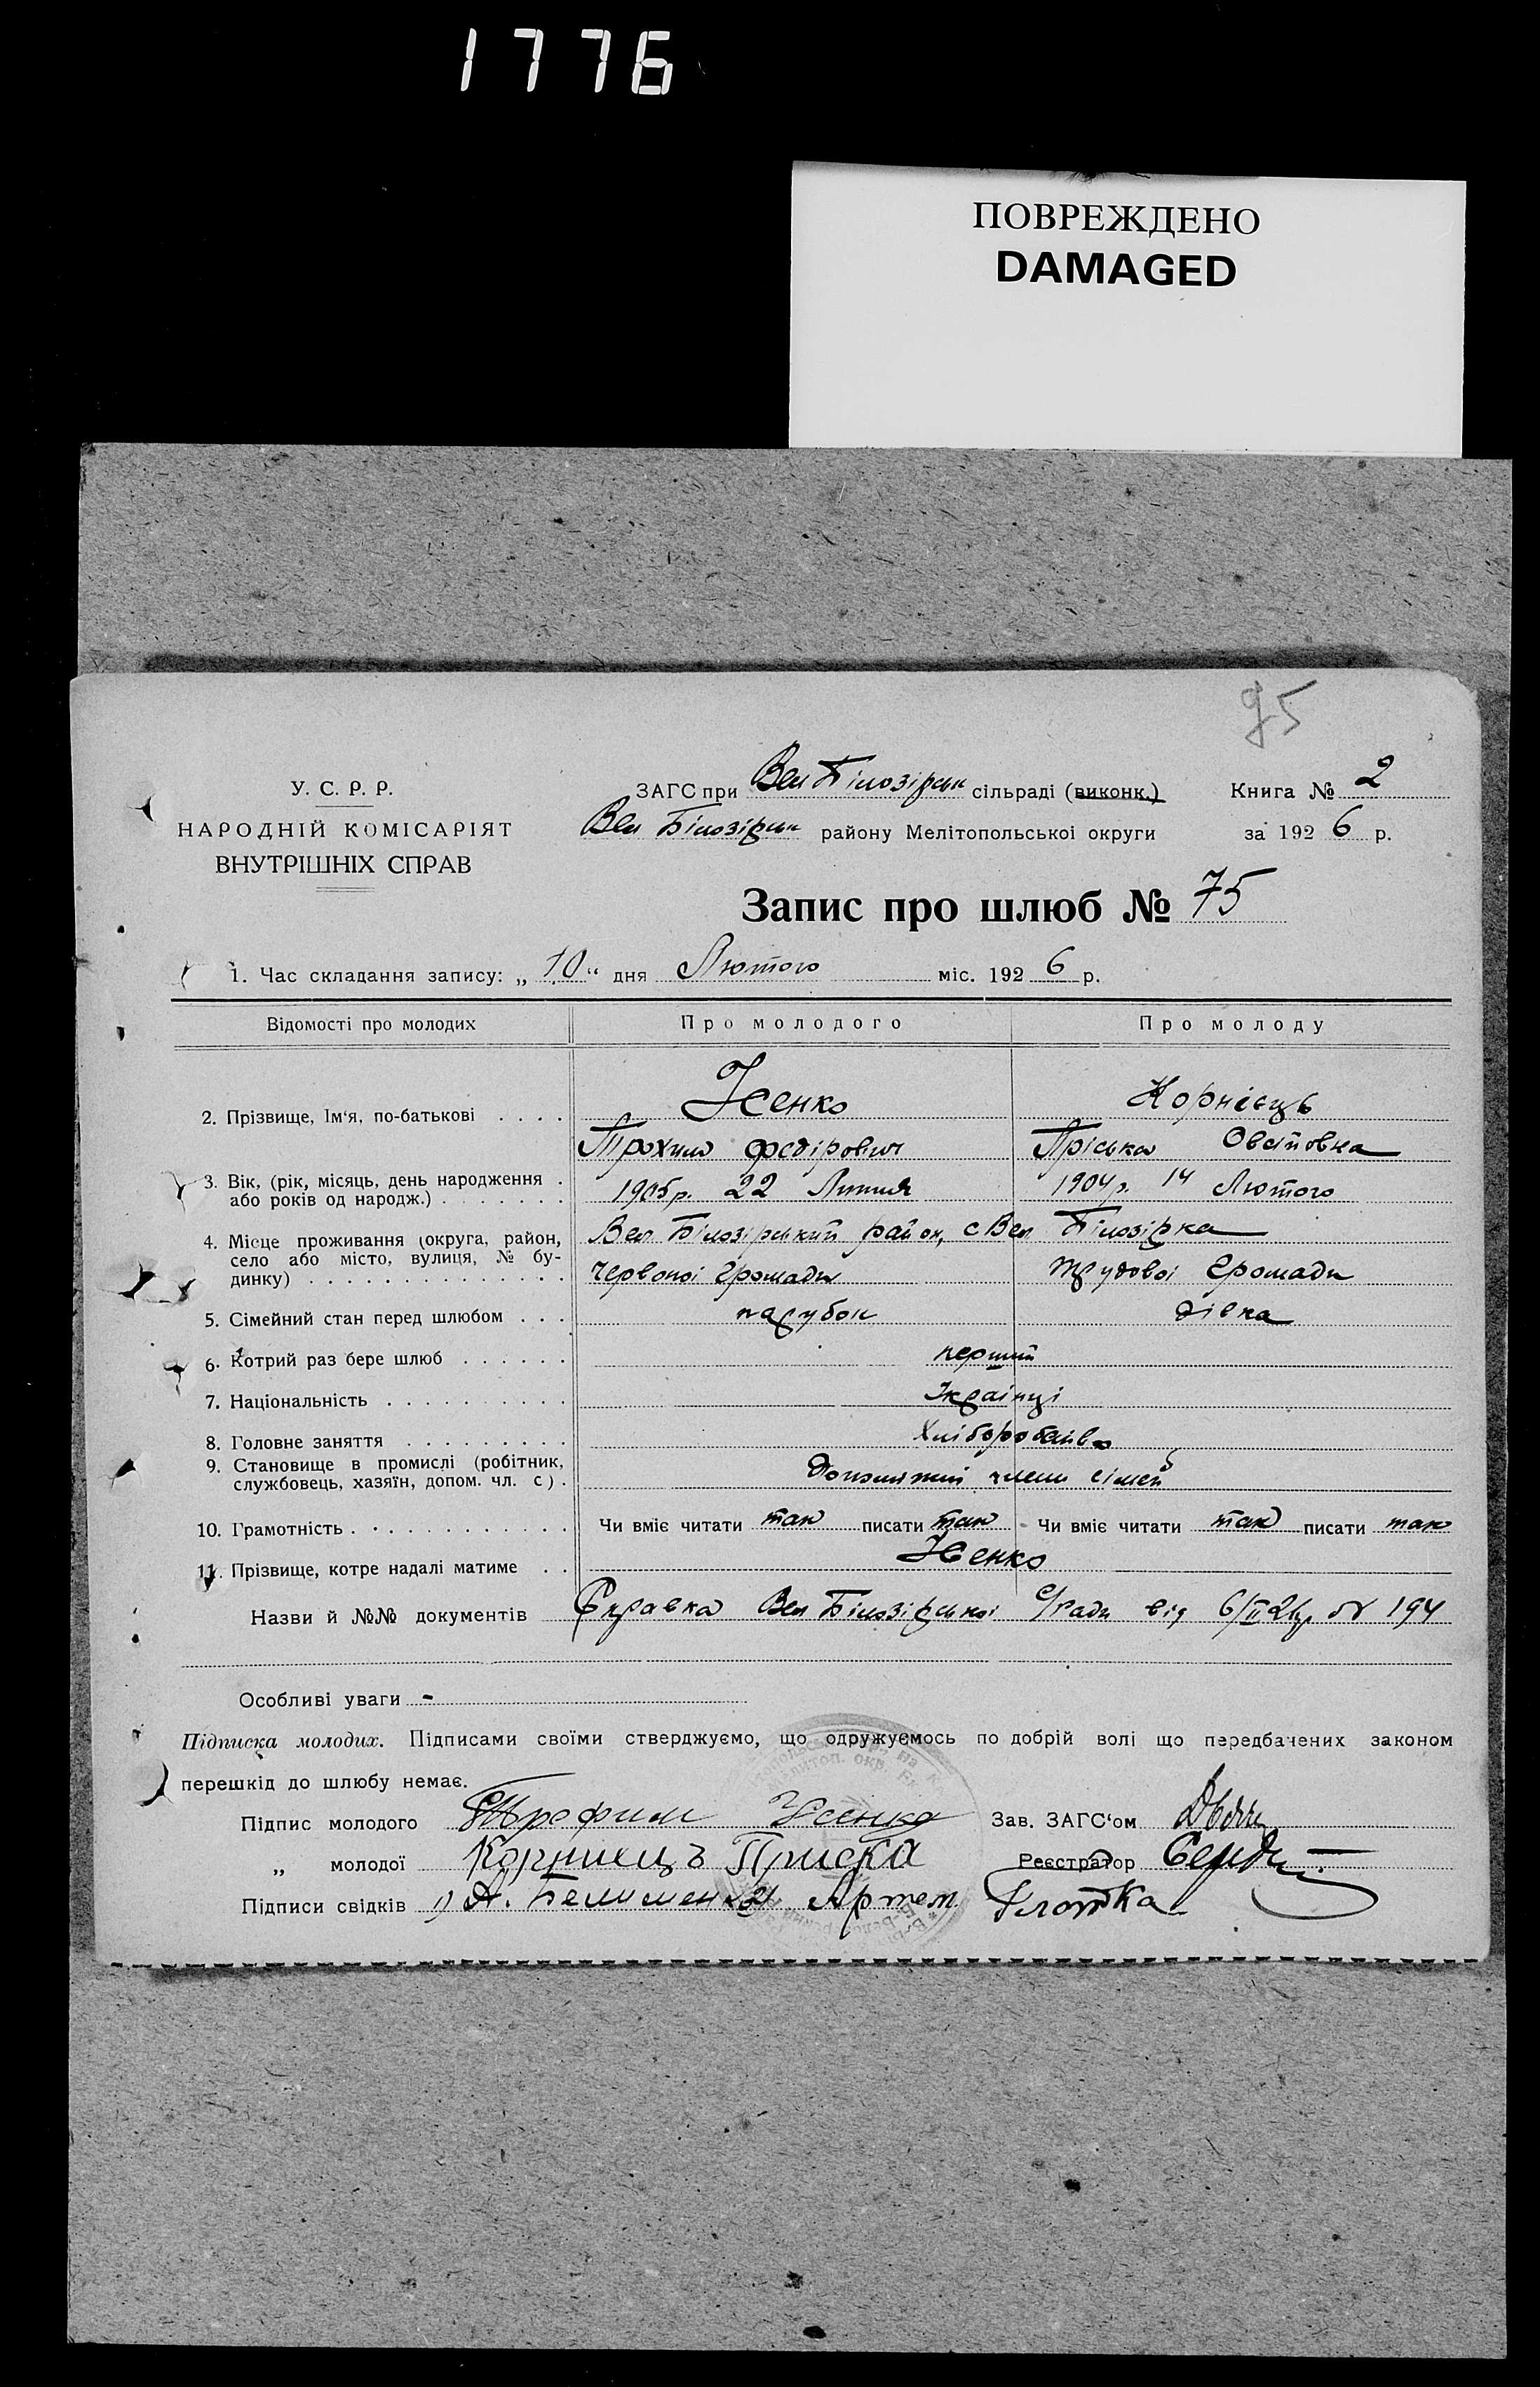 1776
ПОВРЕЖДЕНО
DAMAGED
95
У. С. Р. Р.
НАРОДНІЙ КОМІСАРІЯТ
ВНУТРІШНІХ СПРАВ
ЗАГС при Вел Білозірськ сільраді (виконк.) Книга № 2
Вел Білозірськ району Мелітопольської округи за 1926 р.
Запис про шлюб № 75
1. Час складання запису: „10“ дня Лютого міс. 1926 р.
Відомості про молодих Про молодого Про молоду
2. Прізвище, Ім‘я, по-батькові . . . . Усенко Корнієць
Трохим Федірович Пріська Овсіповна
3. Вік, (рік, місяць, день народження .
або років од народж.) . . . . . . . 1905р. 22 Липня 1904р. 14 Лютого
4. Місце проживання (округа, район,
село або місто, вулиця, № бу-
динку) . . . . . . . . . . . . . .
Вел Білозірський район, с Вел Білозірка
Червоної Громади Трудової Громади
5. Сімейний стан перед шлюбом . . . парубок дівка
6. Котрий раз бере шлюб . . . . . . перший
7. Національність . . . . . . . . . . Українці
8. Головне заняття . . . . . . . . . Хліборобство
9. Становище в промислі (робітник,
службовець, хазяїн, допом. чл. с) . члени сімей
10. Грамотність . . . . . . . . . . . . Чи вміє читати так писати так Чи вміє читати так писати так
11. Прізвище, котре надалі матиме . . Усенко
Назви й №№ документів Справка Вел Білозірської с/ради від 6/II 194
Особливі уваги -
Підписка молодих. Підписами своїми стверджуємо, що одружуємось по добрій волі що передбачених законом
перешкід до шлюбу немає.
Підпис молодого Трефим Усенко Зав. ЗАГС‘ом
„ молодої Корниецъ Приска Реєстратор
Підписи свідків 1) А. 2) Артем Глотка